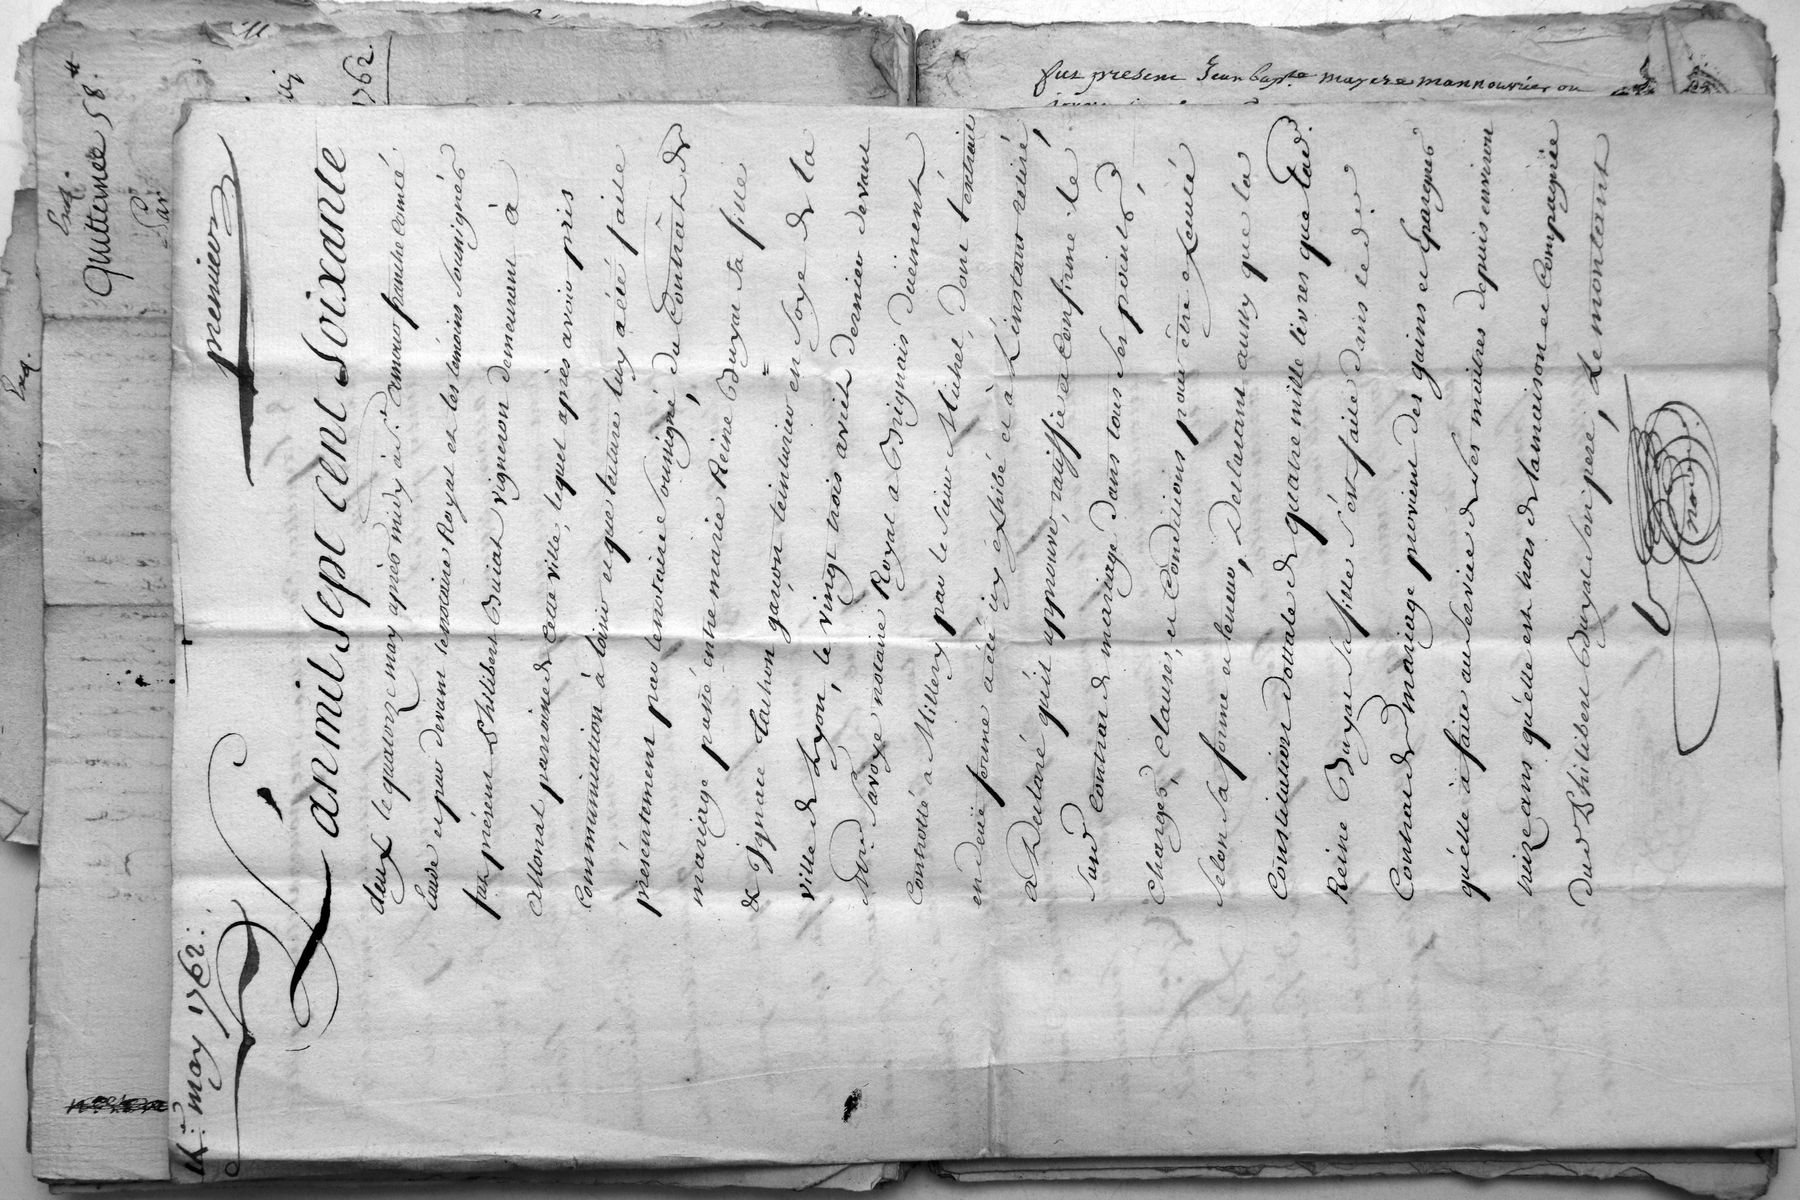 14.e may 1762:
premier
L'an mil Sept cent Soixante
deux le quatorze may après midy à St. amour franche Comté
par devant le notaire Royal et les témoins Soussignés
fut présent Philibert Buiat vigneron demeurant à
Allonat paroisse de Cette ville, lequel après avoir pris
Communication à loisir et que lecture luy a été faite
présentement par le notaire Soussigné, du Contrat de
mariage passé entre marie Reine Buyat Sa fille
& Ignace Tachon garçon teinturier en Soye de la
ville de Lyon, le vingt trois avril dernier devant
Me Savoye notaire Royal a Brignais duëment
Controllé a Millery par le Sieur Michel, dont l'extrait
en deüe forme a été icy exhibé et à L'instant retiré
a Declaré qu'il approuve, ratiffie et Confirme le
Susd Contrat de mariage dans tous Ses points,
Charges, Clauses, et Conditions pour être exécuté
Selon Sa forme et teneur, Declarant aussy que la
Constitution dottale de quatre mille livres que lad.
Reine Buyat Sa fille S'est faite dans led.
Contrat de Mariage provient des gains et Epargnes
qu'elle a faite au Service de Ses maitres depuis environ
treize ans qu'elle est hors de la maison et Compagnie
dud Philibert Buyat Son pere, Le montant
not.
quittement 58.#
Par
1762.
fut present Jean bapte mayere mannouvrier